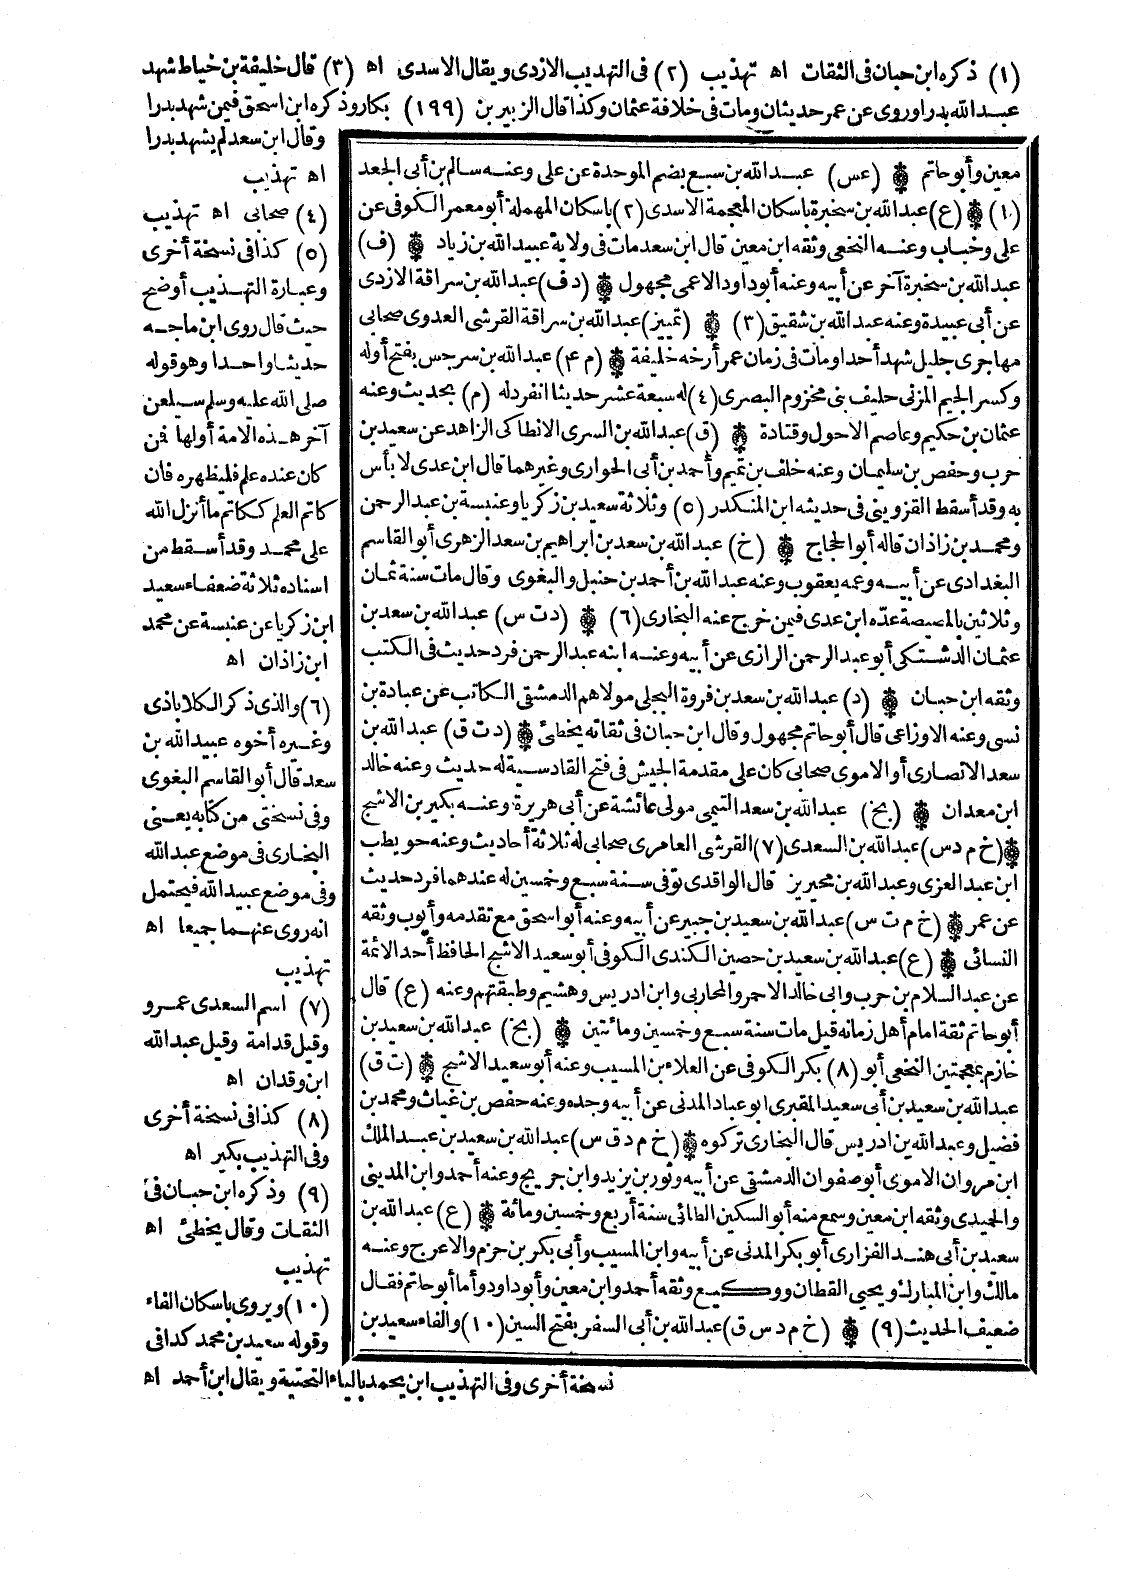 (١) ذكره ابن حبان فى الثقات اه تهذيب (٢) فى التهذيب الازدى ويقال الاسدى اه (٣) قال خليفة بن خياط شهد
عبد الله بدرا وروى عن عمر حديثان ومات فى خلافة عثمان وكذا قال الزبير بن (١٩٩) بكار وذكره ابن اسحق فيمن شهد بدرا
وقال ابن سعد لم يشهد بدرا
اه تهذيب
(٤) صحابى اه تهذيب
(٥) كذا فى نسخة أخرى
وعبارة التهذيب أوضح
حيث قال روى ابن ماجه
حديثا واحدا وهو قوله
صلى الله عليه وسلم سيلعن
آخر هذه الامة أولها فمن
كان عنده علم فليظهره فان
كاتم العلم ككاتم ما أنزل الله
على محمد وقد أسقط من
اسناده ثلاثة ضعفاء سعيد
ابن زكريا عن عنبسة عن محمد
ابن زاذان اه
(٦) والذى ذكر الكلاباذى
وغيره أخوه عبيد الله بن
سعد قال أبو القاسم البغوى
وفى نسختى من كتابه يعنى
البخارى فى موضع عبد الله
وفى موضع عبيد الله فيحتمل
انه روى عنهما جميعا اه
تهذيب
(٧) اسم السعدى عمرو
وقيل قدامة وقيل عبد الله
ابن وقدان اه
(٨) كذا فى نسخة أخرى
وفى التهذيب بكير اه
(٩) وذكره ابن حبان فى
الثقات وقال يخطئ اه
تهذيب
(١٠) ويروى باسكان الفاء
وقوله سعيد بن محمد كذا فى
نسخة أخرى وفى التهذيب ابن يحمد بالياء التحتية ويقال ابن أحمد اه
معين وأبو حاتم ۞ (عس) عبد الله بن سبع بضم الموحدة عن على وعنه سالم بن أبى الجعد
(١) ۞ (ع) عبد الله بن سخبرة باسكان المعجمة الاسدى (٢) باسكان المهملة أبو معمر الكوفى عن
على وخباب وعنه النخعى وثقه ابن معين قال ابن سعد مات فى ولاية عبيد الله بن زياد ۞ (ف)
عبد الله بن سخبرة آخر عن أبيه وعنه أبو داود الاعمى مجهول ۞ (د ف) عبد الله بن سراقة الازدى
عن أبى عبيدة وعنه عبد الله بن شقيق (٣) ۞ (تمييز) عبد الله بن سراقة القرشى العدوى صحابى
مهاجرى جليل شهد أحدا ومات فى زمان عمر أرخه خليفة ۞ (م ٤) عبد الله بن سرجس بفتح أوله
وكسر الجيم المزنى حليف بنى مخزوم البصرى (٤) له سبعة عشر حديثا انفرد له (م) بحديث وعنه
عثمان بن حكيم وعاصم الاحول وقتادة ۞ (ق) عبد الله بن السرى الانطاكى الزاهد عن سعيد بن
حرب وحفص بن سليمان وعنه خلف بن تميم وأحمد بن أبى الحوارى وغيرهما قال ابن عدى لا بأس
به وقد أسقط القزوينى فى حديثه ابن المنكدر (٥) وثلاثة سعيد بن زكريا وعنبسة بن عبد الرحمن
ومحمد بن زاذان قاله أبو الحجاج ۞ (خ) عبد الله بن سعد بن ابراهيم بن سعد الزهرى أبو القاسم
البغدادى عن أبيه وعمه يعقوب وعنه عبد الله بن أحمد بن حنبل والبغوى وقال مات سنة ثمان
وثلاثين بالمصيصة عده ابن عدى فيمن خرج عنه البخارى (٦) ۞ (د ت س) عبد الله بن سعد بن
عثمان الدشتكى أبو عبد الرحمن الرازى عن أبيه وعنه ابنه عبد الرحمن فرد حديث فى الكتب
وثقه ابن حبان ۞ (د) عبد الله بن سعد بن فروة البجلى مولاهم الدمشقى الكاتب عن عبادة بن
نسى وعنه الاوزاعى قال أبو حاتم مجهول وقال ابن حبان فى ثقاته يخطئ ۞ (د ت ق) عبد الله بن
سعد الانصارى أو الاموى صحابى كان على مقدمة الجيش فى فتح القادسية له حديث وعنه خالد
ابن معدان ۞ (بخ) عبد الله بن سعد التيمى مولى عائشة عن أبى هريرة وعنه بكير بن الاشج
۞ (خ م د س) عبد الله بن السعدى (٧) القرشى العامرى صحابى له ثلاثة أحاديث وعنه حويطب
ابن عبد العزى وعبد الله بن محيريز قال الواقدى توفى سنة سبع وخمسين له عندهما فرد حديث
عن عمر ۞ (خ م ت س) عبد الله بن سعيد بن جبير عن أبيه وعنه أبو اسحق مع تقدمه وأيوب وثقه
النسائى ۞ (ع) عبد الله بن سعيد بن حصين الكندى الكوفى أبو سعيد الاشج الحافظ أحد الائمة
عن عبد السلام بن حرب وابى خالد الاحمر والمحاربى وابن ادريس وهشيم وطبقتهم وعنه (ع) قال
أبو حاتم ثقة امام أهل زمانه قيل مات سنة سبع وخمسين ومائتين ۞ (بخ) عبد الله بن سعيد بن
خازم بمعجمتين النخعى أبو (٨) بكر الكوفى عن العلاء بن المسيب وعنه أبو سعيد الاشج ۞ (ت ق)
عبد الله بن سعيد بن أبى سعيد المقبرى ابو عباد المدنى عن أبيه وجده وعنه حفص بن غياث ومحمد بن
فضيل وعبد الله بن ادريس قال البخارى تركوه ۞ (خ م د ق س) عبد الله بن سعيد بن عبد الملك
ابن مروان الاموى أبو صفوان الدمشقى عن أبيه وثور بن يزيد وابن جريج وعنه أحمد وابن المدينى
والحميدى وثقه ابن معين وسمع منه أبو السكين الطائى سنة أربع وخمسين ومائة ۞ (ع) عبد الله بن
سعيد بن أبى هند الفزارى أبو بكر المدنى عن أبيه وابن المسيب وأبى بكر بن حزم والاعرج وعنه
مالك وابن المبارك ويحيى القطان ووكيع وثقه أحمد وابن معين وأبو داود وأما أبو حاتم فقال
ضعيف الحديث (٩) ۞ (خ م د س ق) عبد الله بن أبى السفر بفتح السين (١٠) والفاء سعيد بن